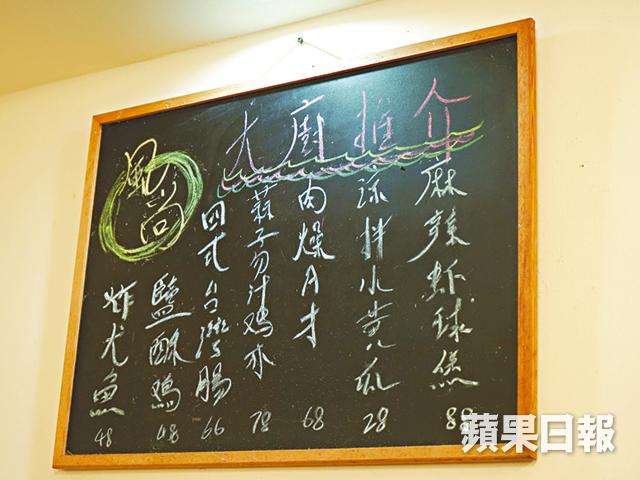 大廚推介
風尚
麻辣虾球煲 88
涼拌小黄瓜 28
肉燥A才 68
蒜子 汁鸡 78
四式台灣腸 66
鹽酥鷄 48
炸尤魚 48
蘋果日報